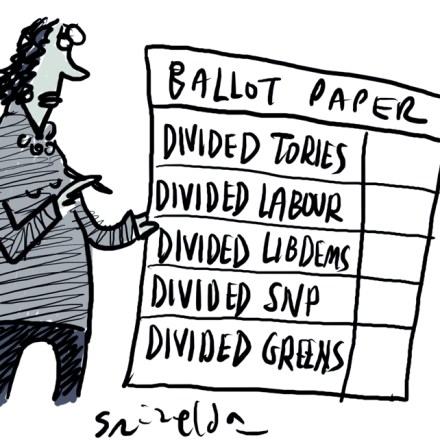 BALLOT PAPER
DIVIDED TORIES
DIVIDED LABOUR
DIVIDED LIBDEMS
DIVIDED SNP
DIVIDED GREENS